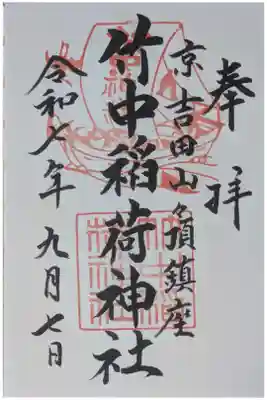 奉拝
京吉田山頂鎮座
竹中稲荷神社
令和七年九月七日